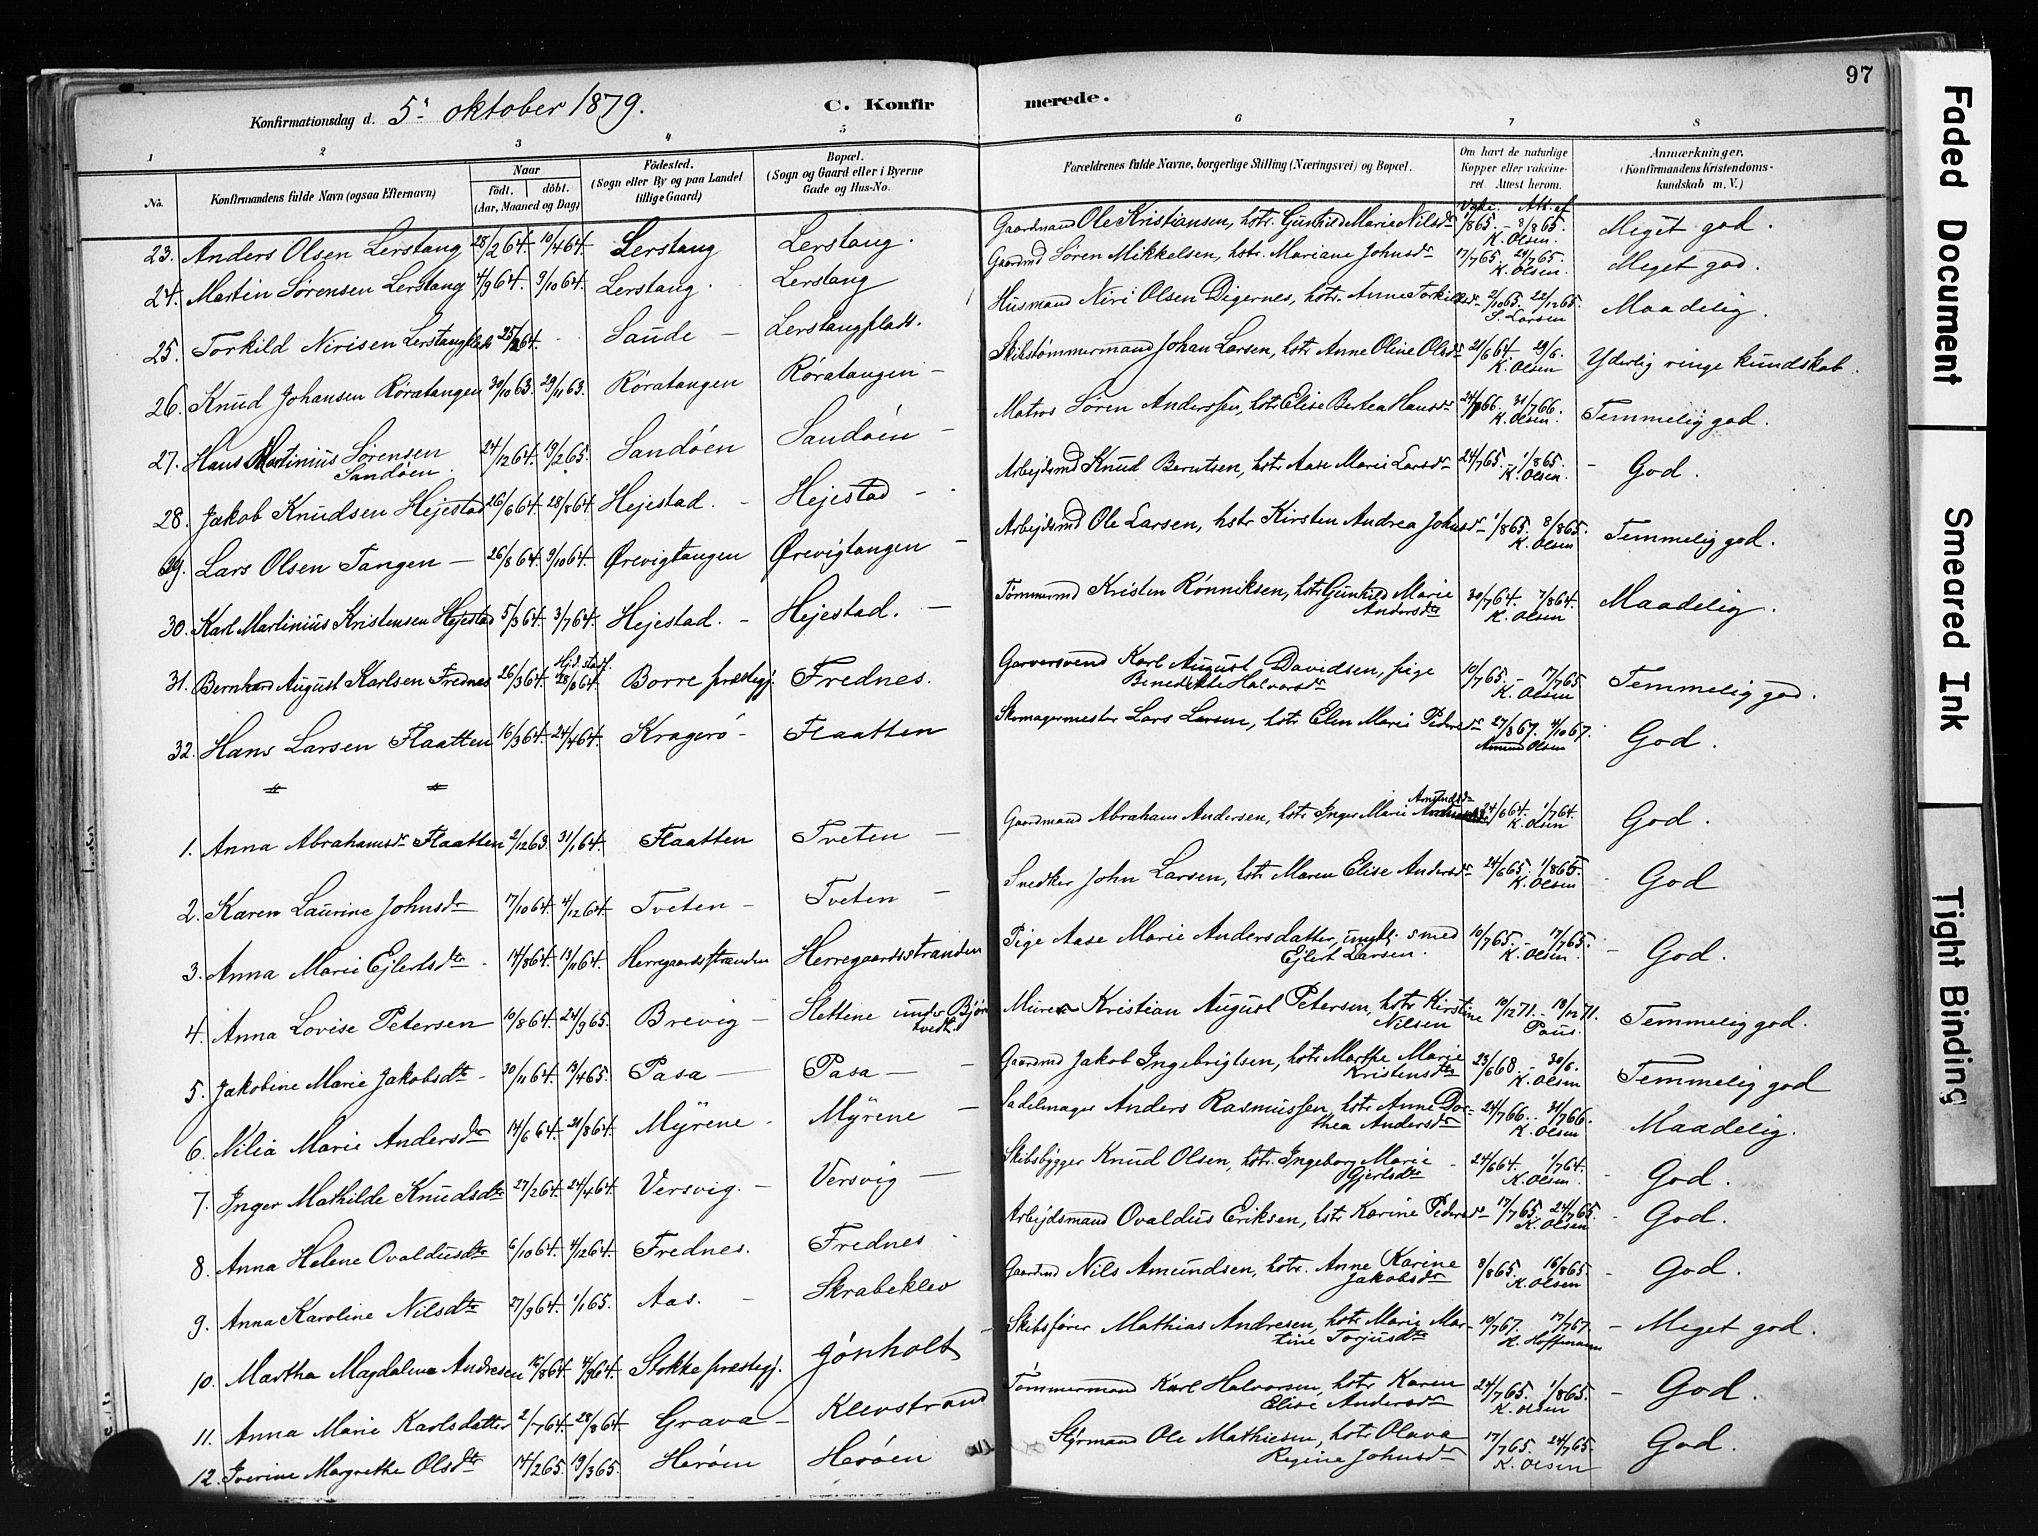 97
Konfirmationsdag d. 5' oktober 1879. C. Konfirmerede.
1 2 3 4 5 6 7 8
No. Konfirmandens fulde Navn (ogsaa Efternavn) Naar født. døbt. (Aar, Maaned og Dag) Fødested. (Sogn eller By og paa Landet tillige Gaard) Bopæl. (Sogn og Gaard eller i Byerne Gade og Hus-No. Forældrenes fulde Navne, borgerlige Stilling (Næringsvei) og Bopæl. Om havt de naturlige Kopper eller vakcineret. Attest herom. Anmærkninger. (Konfirmandens Kristendomskundskab m. V.)
23. Anders Olsen Lerstang 28/2 64. 10/4 64. Lerstang Lerstang. Gaardmand Ole Kristiansen, hstr. Gunhild Marie Nilsdr 1/8 65. - 8/8 65. K. Olsen. Meget god.
24. Martin Sørensen Lerstang 4/9 64. 9/10 64. Lerstang. Lerstang Gaardmd Søren Mikkelsen, hstr. Mariane Johnsdr 17/7 65. 24/7 65. K. Olsen. Meget god.
25. Torkild Nirisen Lerstangplads Saude - Lerstangplads. Husmand Niri Olsen Digernes, hstr. Anne Torkildsdr 2/10 65. 22/12 65. S. Larsen Maadelig.
26. Knud Johansen Røratangen 30/10 63. 29/11 63. Røratangen Røratangen - Skibstømmermand Johan Larsen, hstr Anne Oline Olsdr 21/6 64. 29/6. K. Olsen Yderlig ringe kundskab.
27. Hans Martinius Sørensen Sandøen. 24/12 64. 19/2 65. Sandøen Sandøen - Matros Søren Anderssen, hstr. Elise Bertea Hansdr 24/7 66. 31/7 66. K. Olsen. Temmelig god.
28. Jakob Knudsen Hejestad 26/6 64. 28/8 64. Hejestad. - Hejestad - Arbejdsmd Knud Berntsen, hstr Aase Marie Larsdr 24/7 65. - 1/8 65. K. Olsen. God.
29. Lars Olsen Tangen - 26/8 64. 9/10 64. Ørevigtangen Ørevigtangen - Arbejdsmd Ole Larsen, hstr Kirsten Andrea Johnsdr 1/8 65. 8/8 65. K. Olsen Temmelig god.
30. Karl Martinius Kristensen Hejestad 5/3 64. 3/7 64. Hejestad. - Hejestad. - Tømmermd Kristen Rønniksen, hstr Gunhild Marie Andersdtr 30/7 64. 7/8 64. K. Olsen Maadelig.
31. Bernhard August Karlsen Frednes 26/3 64. 28/6 64. Borre præstegj. Frednes. Garversvend Karl August Davidsen, pige Benedikte Halvorsdr 10/7 65. - 17/7 65 K. Olsen Temmelig god.
32. Hans Larsen Flaatten 16/3 64. 24/4 64. Kragerö - Flaatten Skomagermester Lars Larsen, hstr. Elen Marie Pedersdr 27/8 67. 4/10 67. Amund Olsen God.
〃 〃
1. Anna Abrahamsdr Flaatten 2/12 63. 31/1 64. Flaatten Tveten - Gaardmand Abraham Andersen, hstr Inger Marie Amundsdr 24/6 64. 1/7 64. K. Olsen God.
2. Karen Laurine Johnsdr 17/10 64. 4/12 64. Tveten - Tveten - Snedker John Larsen, hstr. Maren Elise Andersdr 24/6 65. 1/8 65. K. Olsen God
3. Anna Marie Ejlertsdtr. 14/8 64. 13/11 64. Herregaardsstranden Herregaardsstranden Pige Aase Marie Andersdatter, smed Ejlert Larsen. 10/7 65. - 17/7 65. K. Olsen. God.
4. Anna Lovise Petersen 10/8 64. 24/9 65. Brevig - Slettene under Björntvedt. Murer Kristian August Petersen, hstr Kirstine Nilsen 10/12 71. - 18/12 71. Paus. Temmelig god.
5. Jakobine Marie Jakobsdtr - 30/11 64. 13/4 65. Pasa - Pasa - Gaardmd Jakob Ingebrigtsen, hstr Marthe Marie Kristensdtr 23/6 68. - 30/6. K. Olsen Temmelig god
6. Nilia Marie Andersdtr 14/6 64. 21/8 64. Myrene - Myrene - Sadelmager Anders Rasmussen, hstr. Anne Dorthea Andersdr 24/7 66. 31/7 66. K. Olsen Maadelig.
7. Inger Mathilde Knudsdtr 27/2 64. 24/4 64. Versvig. - Versvig - Skibsbygger Knud Olsen, hstr. Ingeborg Marie Gjertsdtr 24/6 64. 1/7 64. K. Olsen. God.
8. Anna Helene Ovaldusdtr 6/10 64. 4/12 64. Frednes. Frednes Arbejdsmand Ovaldus Eriksen, hstr Karine Pedersdr 17/7 65. 24/7 65. K. Olsen God.
9. Anna Karoline Nilsdtr 27/9 64. 1/1 65. Aas. - Skrabeklev Gaardmd Nils Amundsen, hstr. Anne Karine Jakobsdr 8/8 65. 16/8 65. K. Olsen God.
10. Martha Magdalena Andresen 12/8 64. 4/9 64. Stokke præstegj. Gjönholt - Skibsfører Mathias Andresen, hstr Marie Martine Torjusdtr 10/7 67. 17/7 67. H. Hoffmann - Meget god.
11. Anna Marie Karlsdatter 2/7 64. 28/8 64. Grava - Klevstrand Tømmermand Karl Halvorsen, hstr Karen Elise Andersdr 24/7 65. 1/8 65. K. Olsen God.
12. Iverine Margrethe Olsdtr 14/2 65. 19/3 65. Herøen Herøen Styrmand Ole Mathiesen, hstr Olava Regine Johnsdr 17/7 65. 24/7 65. K. Olsen God.
Faded Document
Smeared Ink
Tight Binding